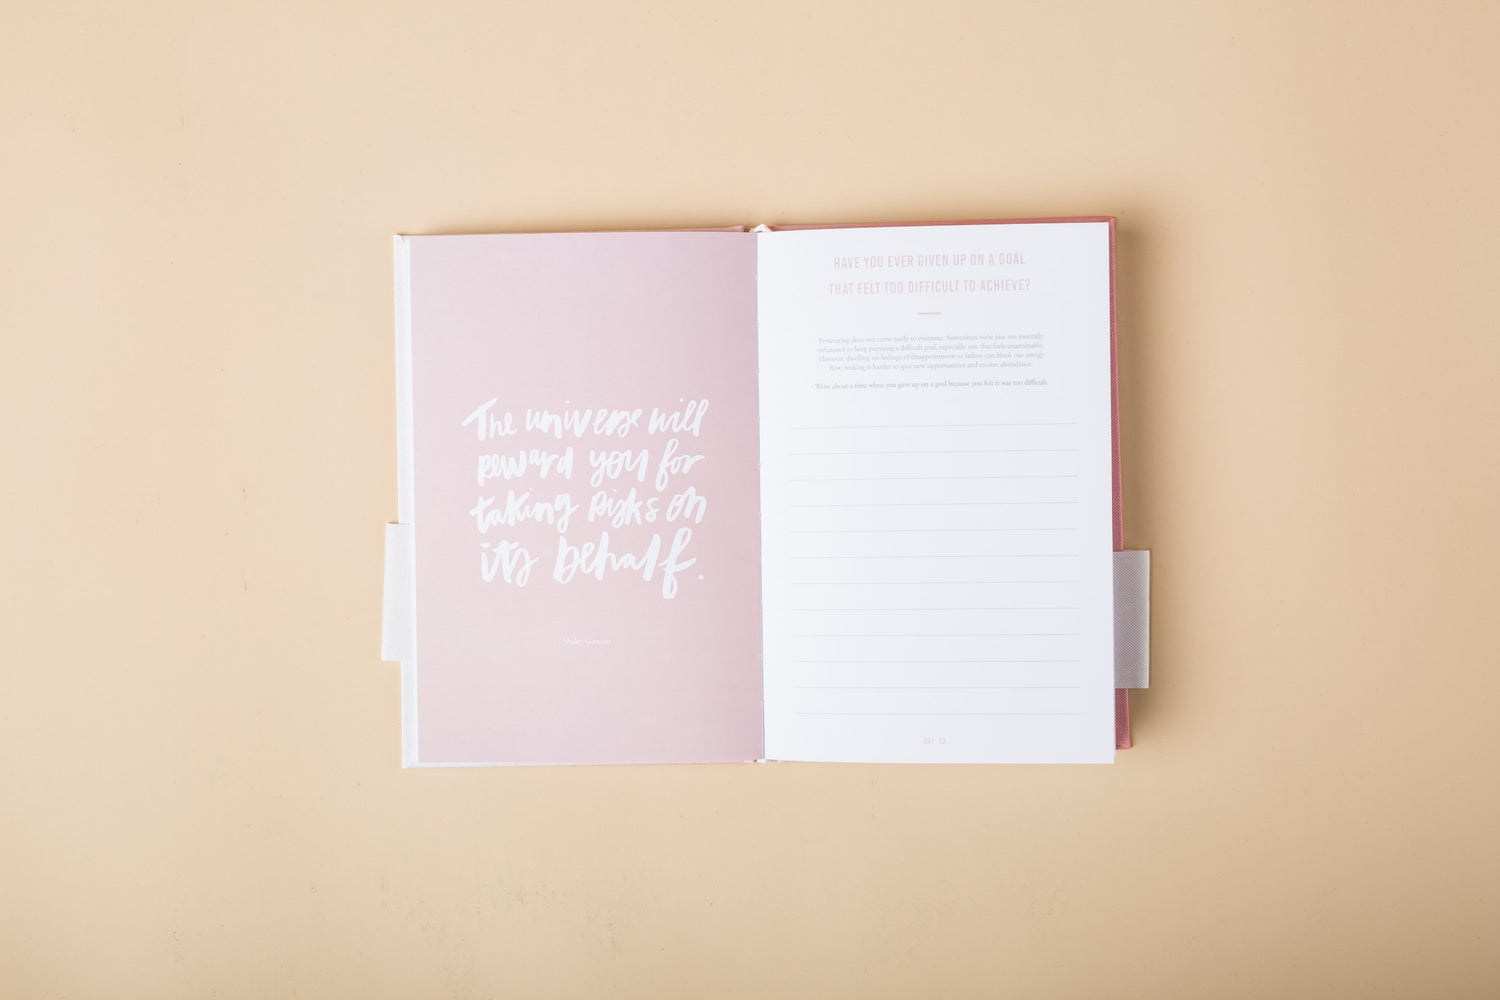 The universe will
reward you for
taking risks on
its behalf.
- Shakti Gawain -
HAVE YOU EVER GIVEN UP ON A GOAL
THAT FELT TOO DIFFICULT TO ACHIEVE?
Persevering does not come easily to everyone. Sometimes we're just too mentally
exhausted to keep pursuing a difficult goal, especially one that feels unattainable.
However, dwelling on feelings of disappointment or failure can block our energy
flow, making it harder to spot new opportunities and receive abundance.
Write about a time when you gave up on a goal because you felt it was too difficult.
DAY 13